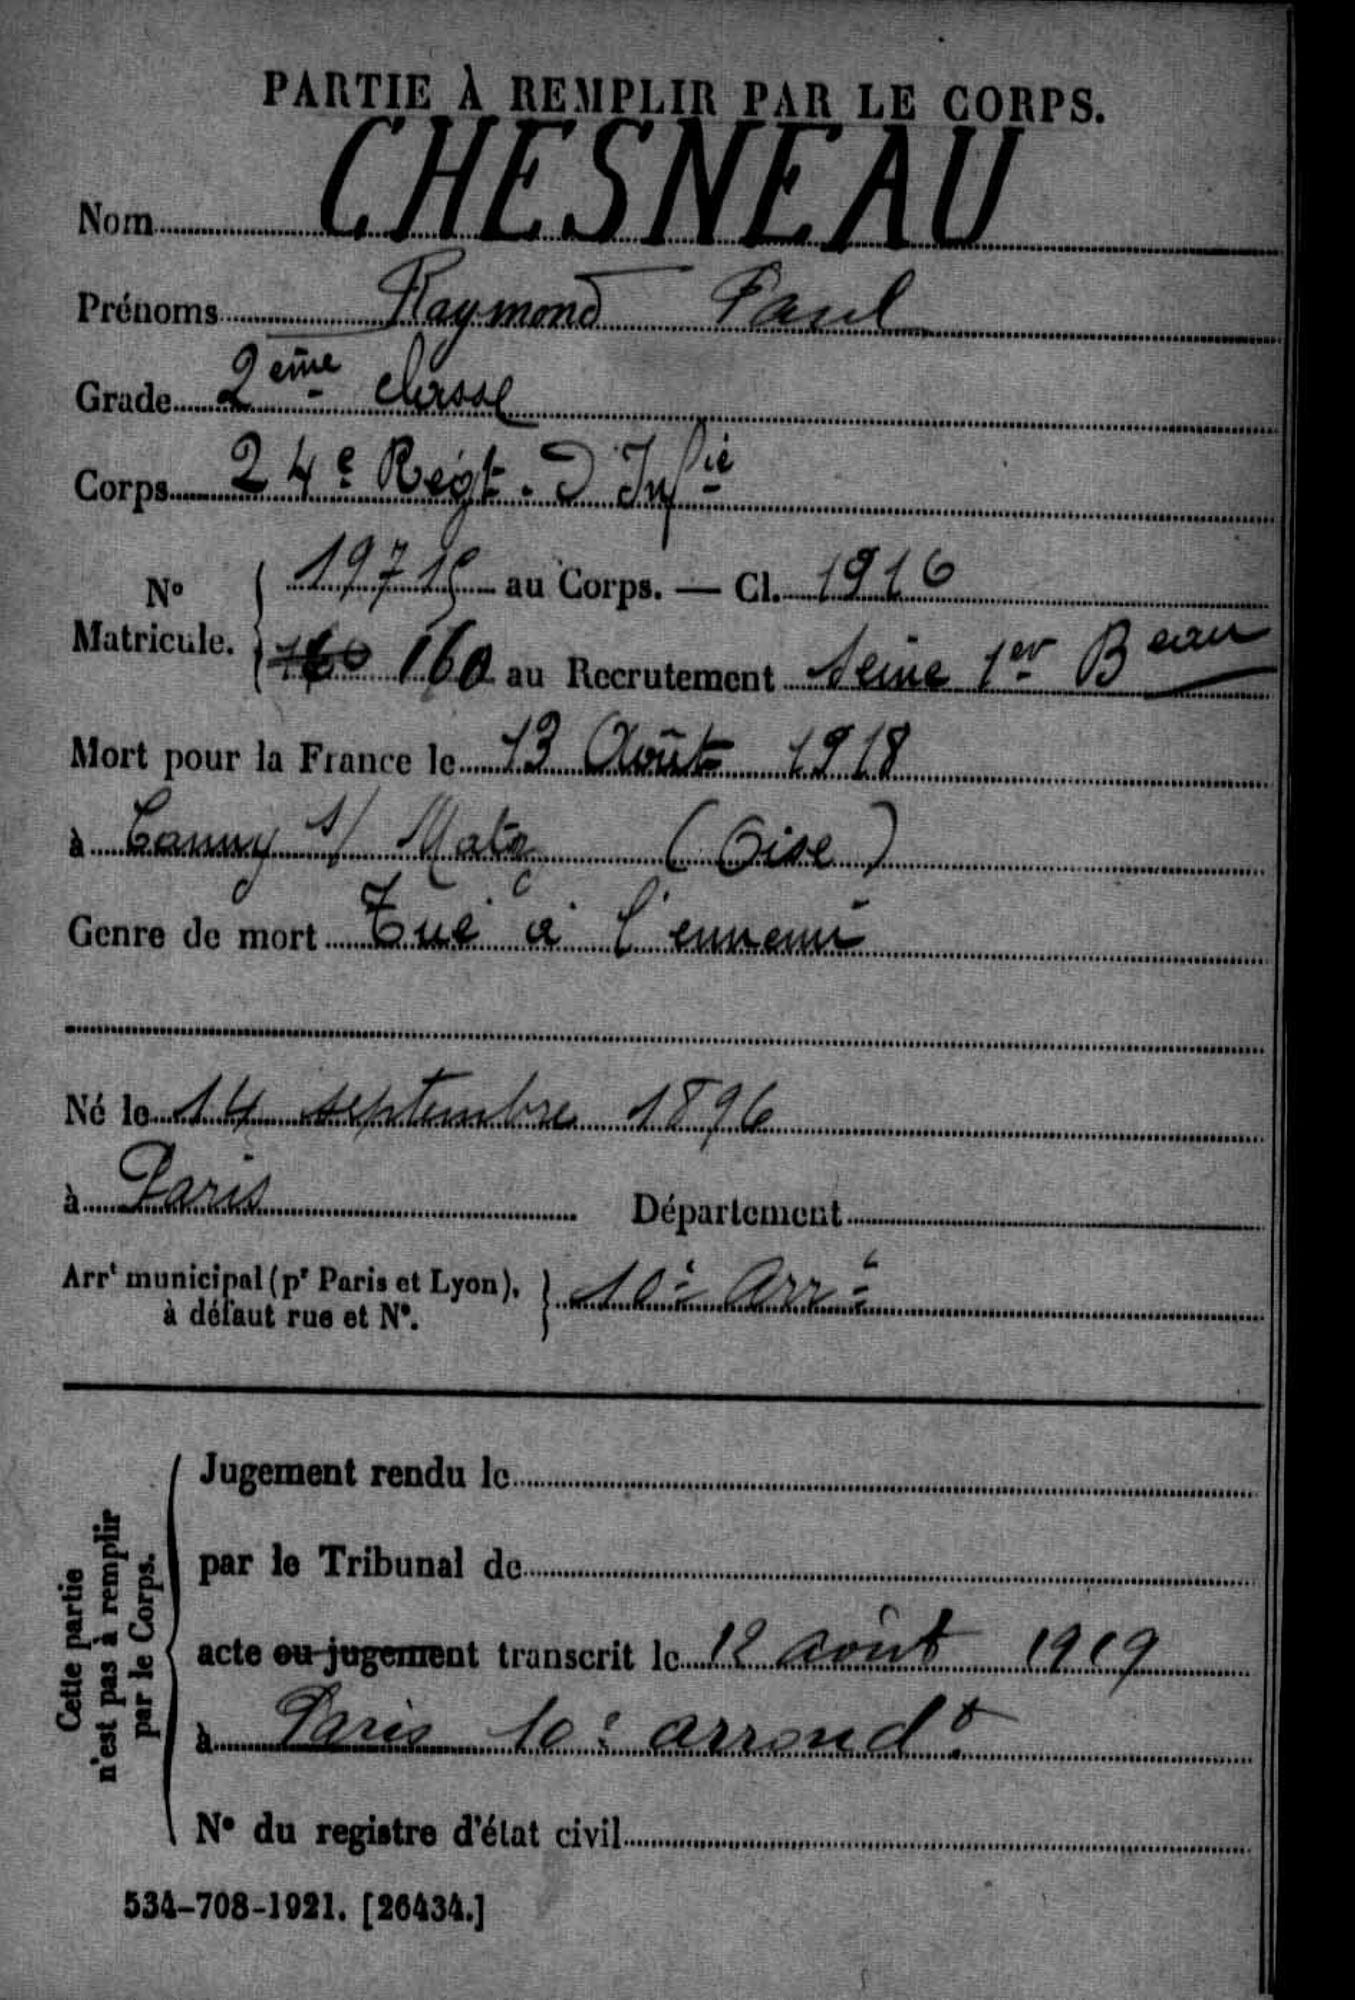 PARTIE À REMPLIR PAR LE CORPS.
Nom CHESNEAU
Prénoms Raymond Paul
Grade 2eme classe
Corps 24e Régt. D'Infie
No Matricule. { 19715 au Corps. — Cl. 1916
160 160 au Recrutement Seine 1er Beau
Mort pour la France le 13 Août 1918
à Canny s/ Matz (Oise)
Genre de mort Tué à l'ennemi
Né le 14 septembre 1896
à Paris Département
Arrt municipal (pr Paris et Lyon), } 10e Arrt
à défaut rue et No.
Cette partie
n'est pas à remplir
par le Corps.
Jugement rendu le
par le Tribunal de
acte ou jugement transcrit le 12 août 1919
à Paris 10e arrondt
No du registre d'état civil
534-708-1921. [26434.]